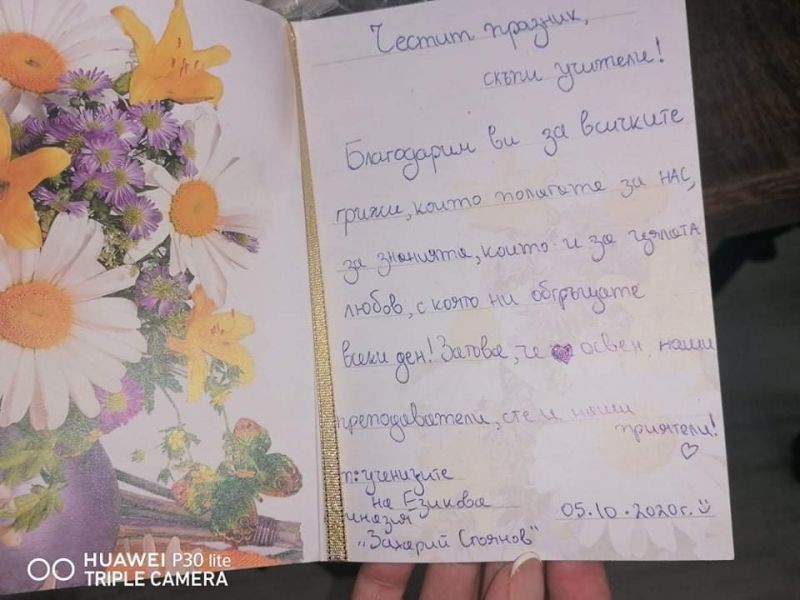 Честит празник,
скъпи учители!
Благодарим ви за всичките
грижи, които полагате за нас,
за знанията, които и за цялата
любов, с която ни обгръщате
всеки ден! Затова, че освен наши
преподаватели, сте и наши
приятели!
т: учениците
на Езикова
гимназия
"Захарий Стоянов"
05.10.2020г.
HUAWEI P30 lite
TRIPLE CAMERA